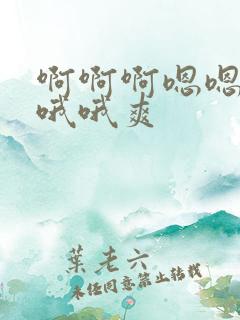 啊啊啊嗯嗯
哦哦爽
葉老六
未经同意禁止转载